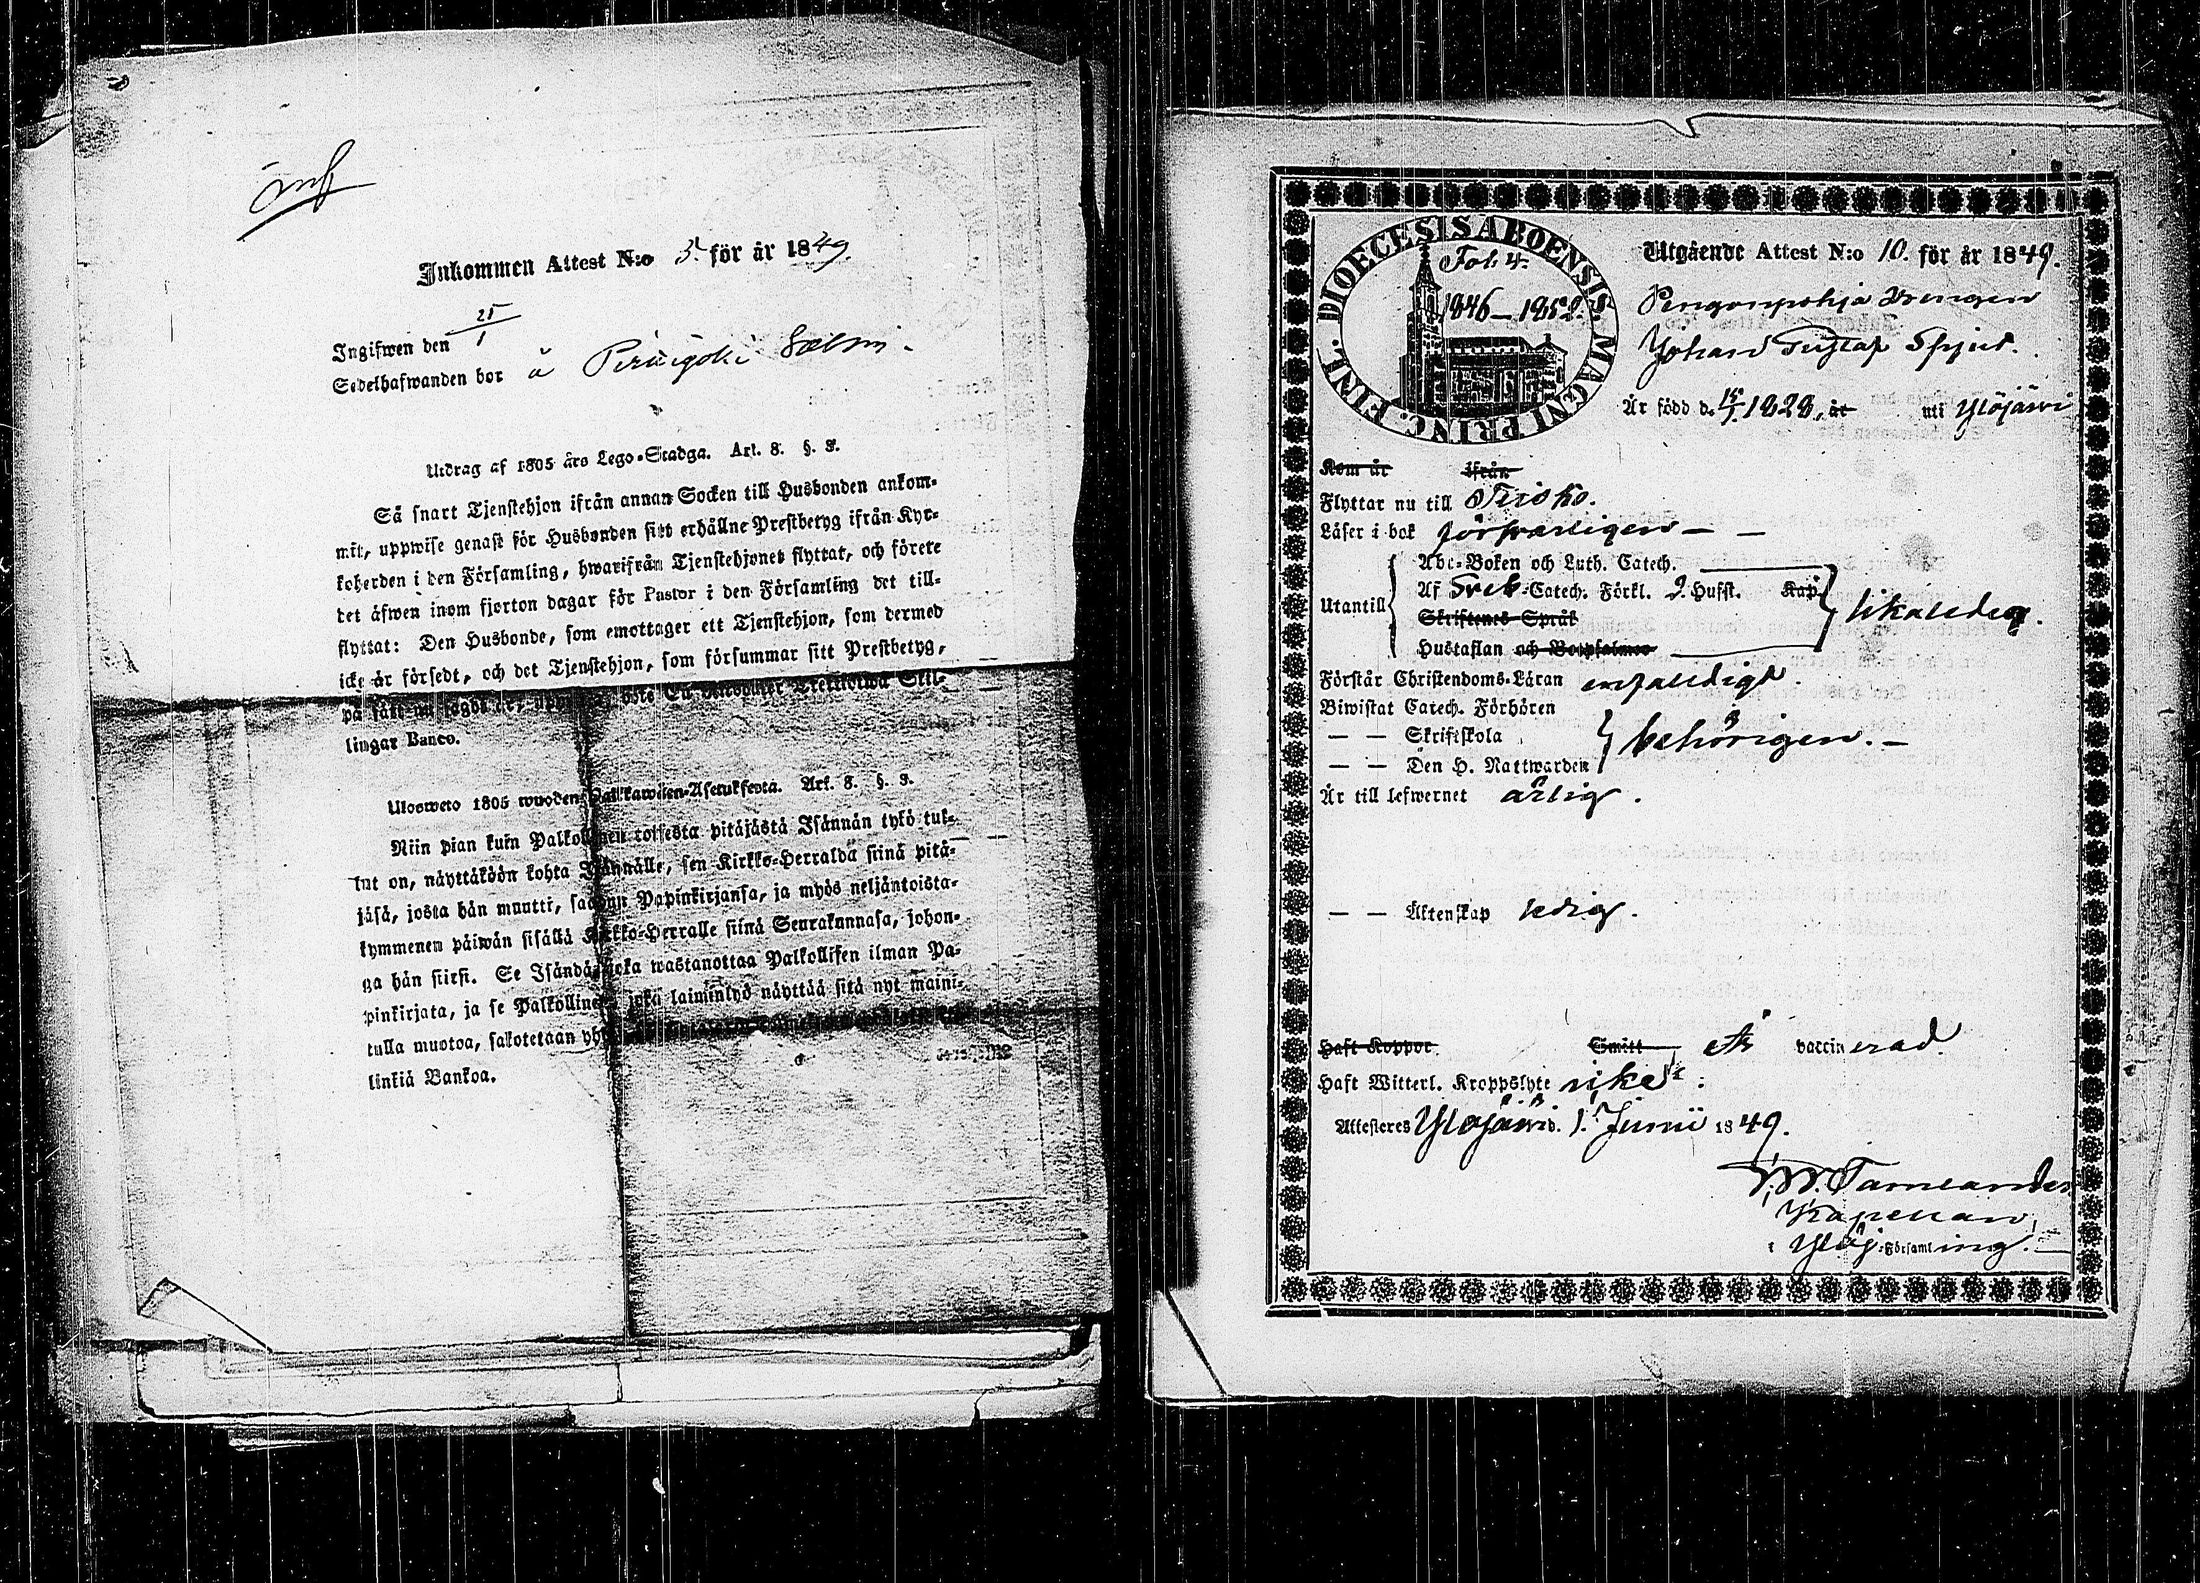 Inkommen Attest N:o 5. för år 1849.
Ingifwen den 21/1
Sedelhafwanden bor å
Utdrag af 1805 års Lego-Stadga. Art. 8. §. 3.
Så snart Tjenstehjon ifrån annan Socken till Husbonden ankom-
mit, uppwise genast för Husbonden sitt erhållne Prestbetyg ifrån Kyr-
koherden i den Församling, hwarifrån Tjenstehjonet flyttat, och förete
det äfwen inom fjorton dagar för Pastor i den Församling det till-
flyttat: Den Husbonde, som emottager ett Tjenstehjon, som dermed
icke är försedt, och det Tjenstehjon, som försummar sitt Prestbetyg,
på sätt nu sagdt är, Trettiotwå Skil-
lingar Banco.
Ulosweto 1805 wuoden Palkawäen-Asetuksesta. Art. 8. §. 3.
Niin pian kuin Palkollinen toisesta pitäjästä Isännän tykö tul-
lut on, näyttäköön kohta Isännälle, sen Kirkko-Herralda siinä pitä-
jäsä, josta hän muutti, saadun Papinkirjansa, ja myös neljäntoista-
kymmenen päiwän sisällä Kirkko-Herralle siinä Seurakunnasa, johon-
ga hän siirsi. Se Isändä, joka wastanottaa Palkollisen ilman Pa-
pinkirjata, ja se Palkollinen, joka laiminlyö näyttää sitä nyt maini-
tulla muotoa, sakotetaan
linkiä Bankoa.
DIOECESIS ABOENSIS. MAGNI PRINC. FINL.
Fol. 4.
1846–1852.
Utgående Attest N:o 10. för år 1849.
Pengonpohja Drengen
Johan Gustaf Spjut.
Är född d. 15/1 1828, år uti Ylöjärwi
Kom år ifrån
Flyttar nu till
Läser i bok försvarligen — —
Utantill
Abc-Boken och Luth. Catech.
Af Sveb. Catech. Förkl. 2. Hufst. Kap.
Skriftenes Språk
Hustaflan och Botpsalmer
likaledes.
Förstår Christendoms-Läran enfaldigt.
Biwistat Catech. Förhören
— — Skriftskola
— — Den H. Nattwarden
behörigen. —
Är till lefwernet ärlig.
— — Äktenskap ledig.
Haft Koppor. Smitt är vaccinerad.
Haft Witterl. Kroppslyte icke:
Attesteres Ylöjärwi d. 1. Junii 1849.
Kapellan
i Ylöj. Församling.